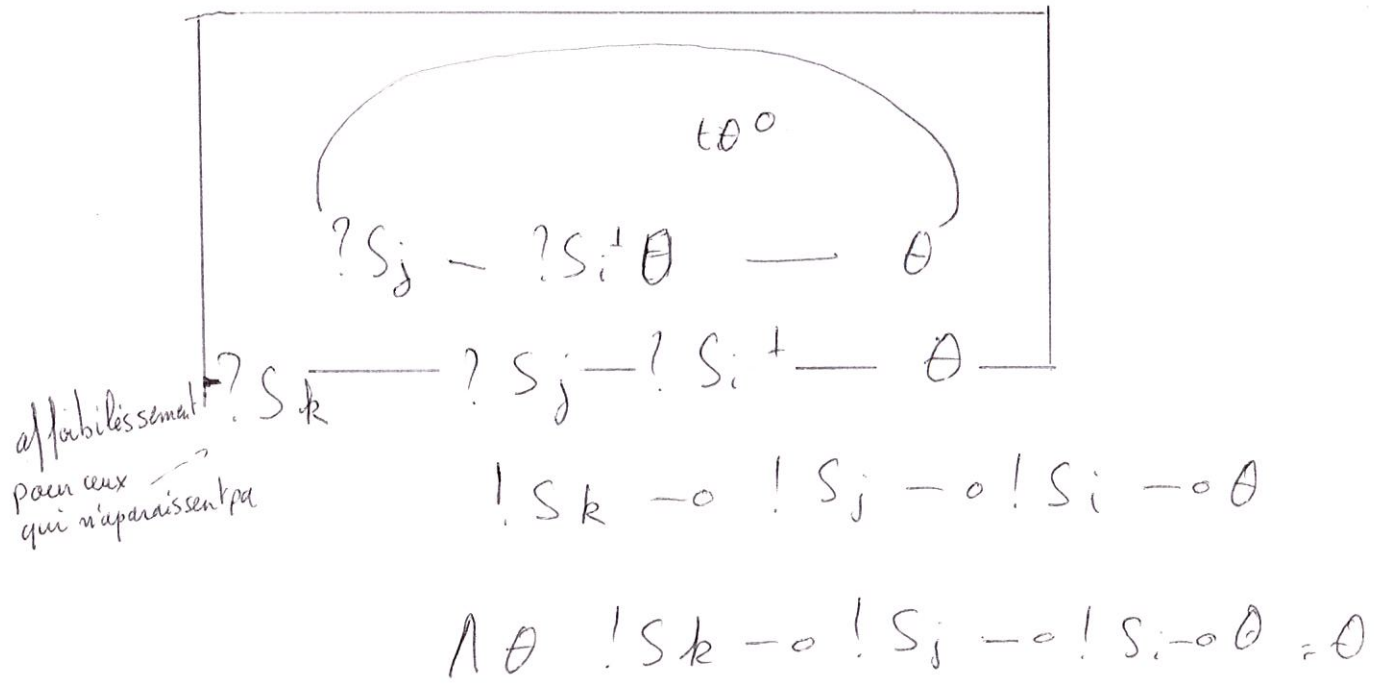 tθ°
?Sj — ?Si⊥θ — θ
?Sk — ?Sj — ?Si⊥ — θ
affoibiléssement
pour ceux
qui n'aparaissent pa
!Sk —o !Sj —o !Si —o θ
Λθ !Sk —o !Sj —o !Si —o θ , θ